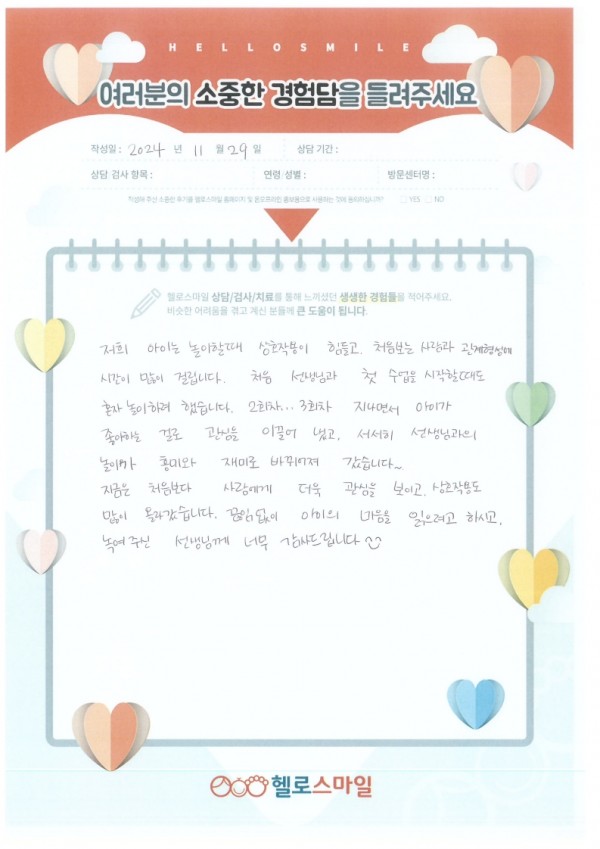 HELLOSMILE
여러분의 소중한 경험담을 들려주세요
작성일 : 2024 년 11 월 29 일 상담 기간 :
상담 검사 항목 : 연령/성별 : 방문센터명 :
작성해 주신 소중한 후기를 헬로스마일 홈페이지 및 온오프라인 홍보용으로 사용하는 것에 동의하십니까? YES NO
헬로스마일 상담/검사/치료를 통해 느끼셨던 생생한 경험들을 적어주세요.
비슷한 어려움을 겪고 계신 분들께 큰 도움이 됩니다.
저희 아이는 놀이할때 상호작용이 힘들고, 처음보는 사람과 관계형성에
시간이 많이 걸립니다. 처음 선생님과 첫 수업을 시작할때도
혼자 놀이하려 했습니다. 2회차... 3회차 지나면서 아이가
좋아하는 걸로 관심을 이끌어 냈고, 서서히 선생님과의
놀이가 흥미와 재미로 바뀌어져 갔습니다~
지금은 처음보다 사람에게 더욱 관심을 보이고, 상호작용도
많이 올라갔습니다. 끊임없이 아이의 마음을 읽으려고 하시고,
녹여주신 선생님께 너무 감사드립니다
헬로스마일